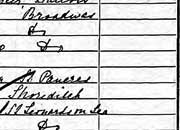 Broadway
Do
Do
St Pancras
Shoreditch
St Leonards on Sea
Do